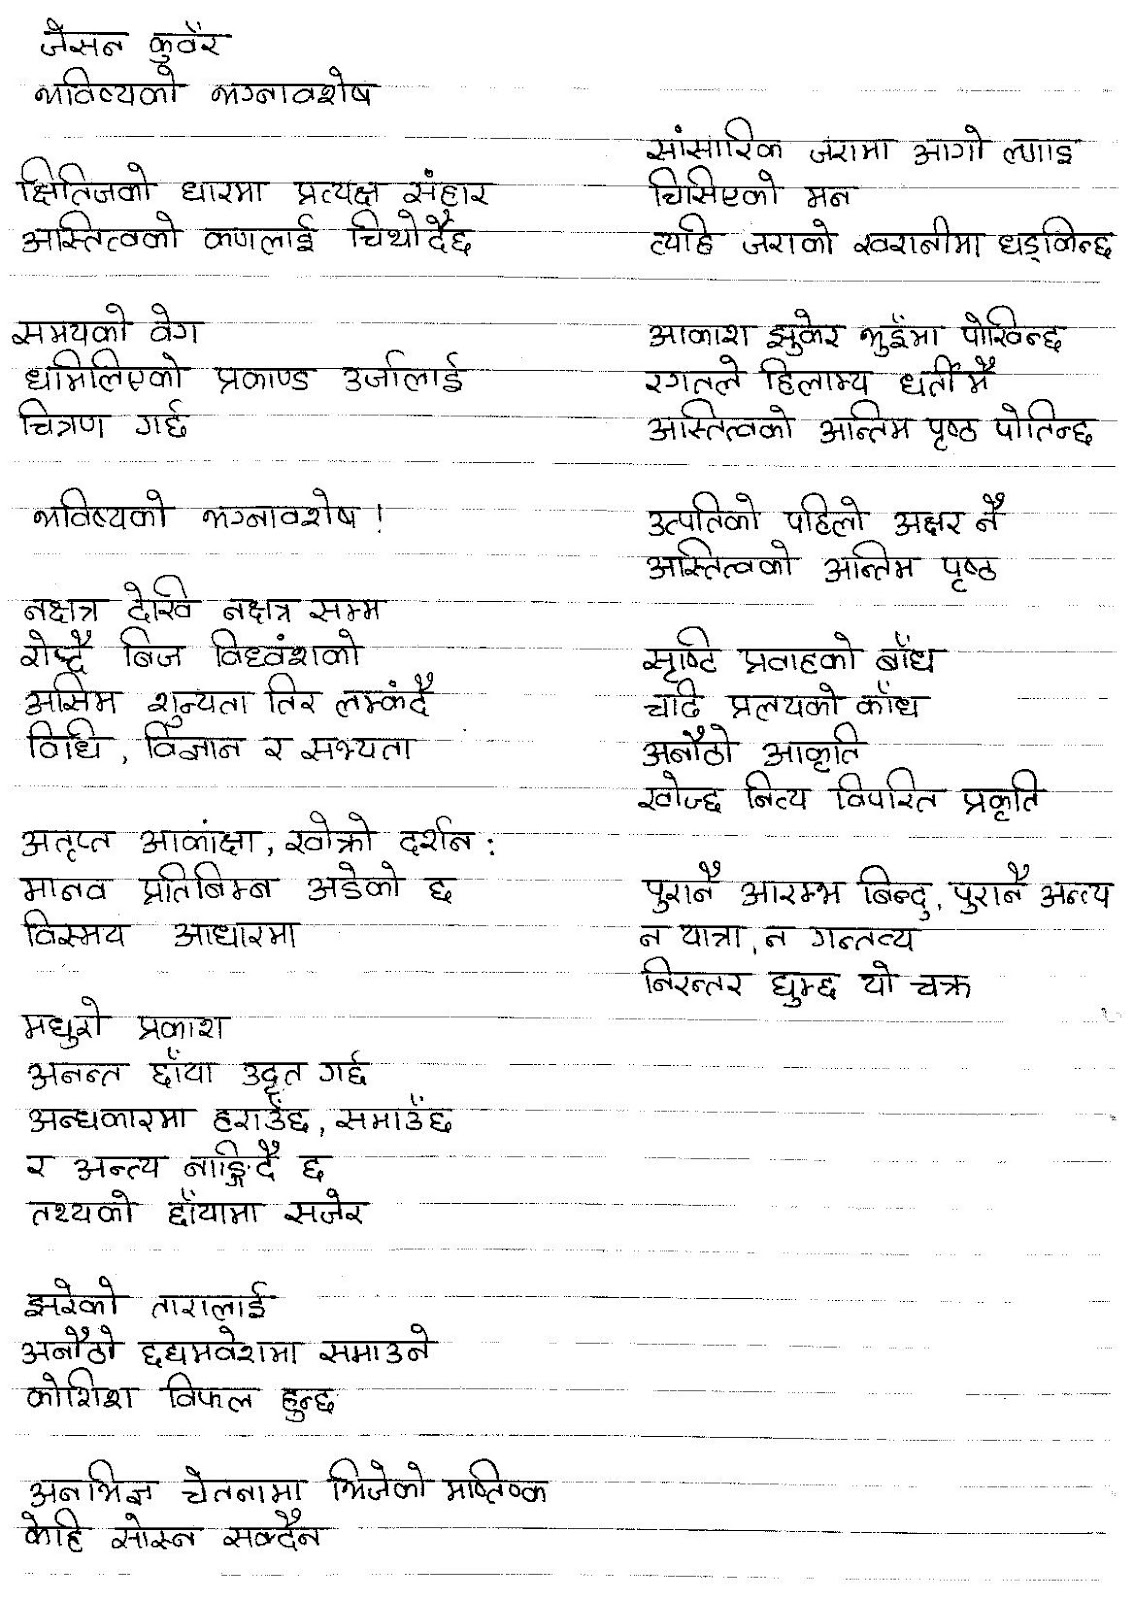 जेसन कुवँर
भविष्यको भग्नावशेष
क्षितिजको धारमा प्रत्यक्ष संहार
अस्तित्वको कणलाई चिथोर्दैछ
समयको वेग
धमिलिएको प्रकाण्ड उर्जालाई
चित्रण गर्छ
भविष्यको भग्नावशेष !
नक्षत्र देखि नक्षत्र सम्म
रोप्दै बिज विध्वंशको
असिम शुन्यता तिर लम्कंदै
विधि, विज्ञान र सभ्यता
अतृप्त आकांक्षा, खोक्रो दर्शन :
मानव प्रतिबिम्ब अडेको छ
विस्मय आधारमा
मधुरो प्रकाश
अनन्त छाँया उद्धृत गर्छ
अन्धकारमा हराउँछ, समाउँछ
र अन्त्य नाङ्गिदै छ
तथ्यको छाँयामा सजेर
झरेको तारालाई
अनौठो छद्यमवेशमा समाउने
कोशिश विफल हुन्छ
अनभिज्ञ चेतनामा भिजेको मष्तिष्क
केहि सोस्न सक्दैन
सांसारिक जरामा आगो लगाइ
चिसिएको मन
त्यहि जराको खरानीमा धड्किन्छ
आकाश झुकेर भुइँमा पोखिन्छ
रगतले हिलाम्य धर्तीमै
अस्तित्वको अन्तिम पृष्ठ पोतिन्छ
उत्पतिको पहिलो अक्षर नै
अस्तित्वको अन्तिम पृष्ठ
सृष्टि प्रवाहको बाँध
चढि प्रलयको काँध
अनौठो आकृति
खोज्छ नित्य विपरित प्रकृति
पुरानै आरम्भ बिन्दु, पुरानै अन्त्य
न यात्रा, न गन्तव्य
निरन्तर घुम्छ यो चक्र